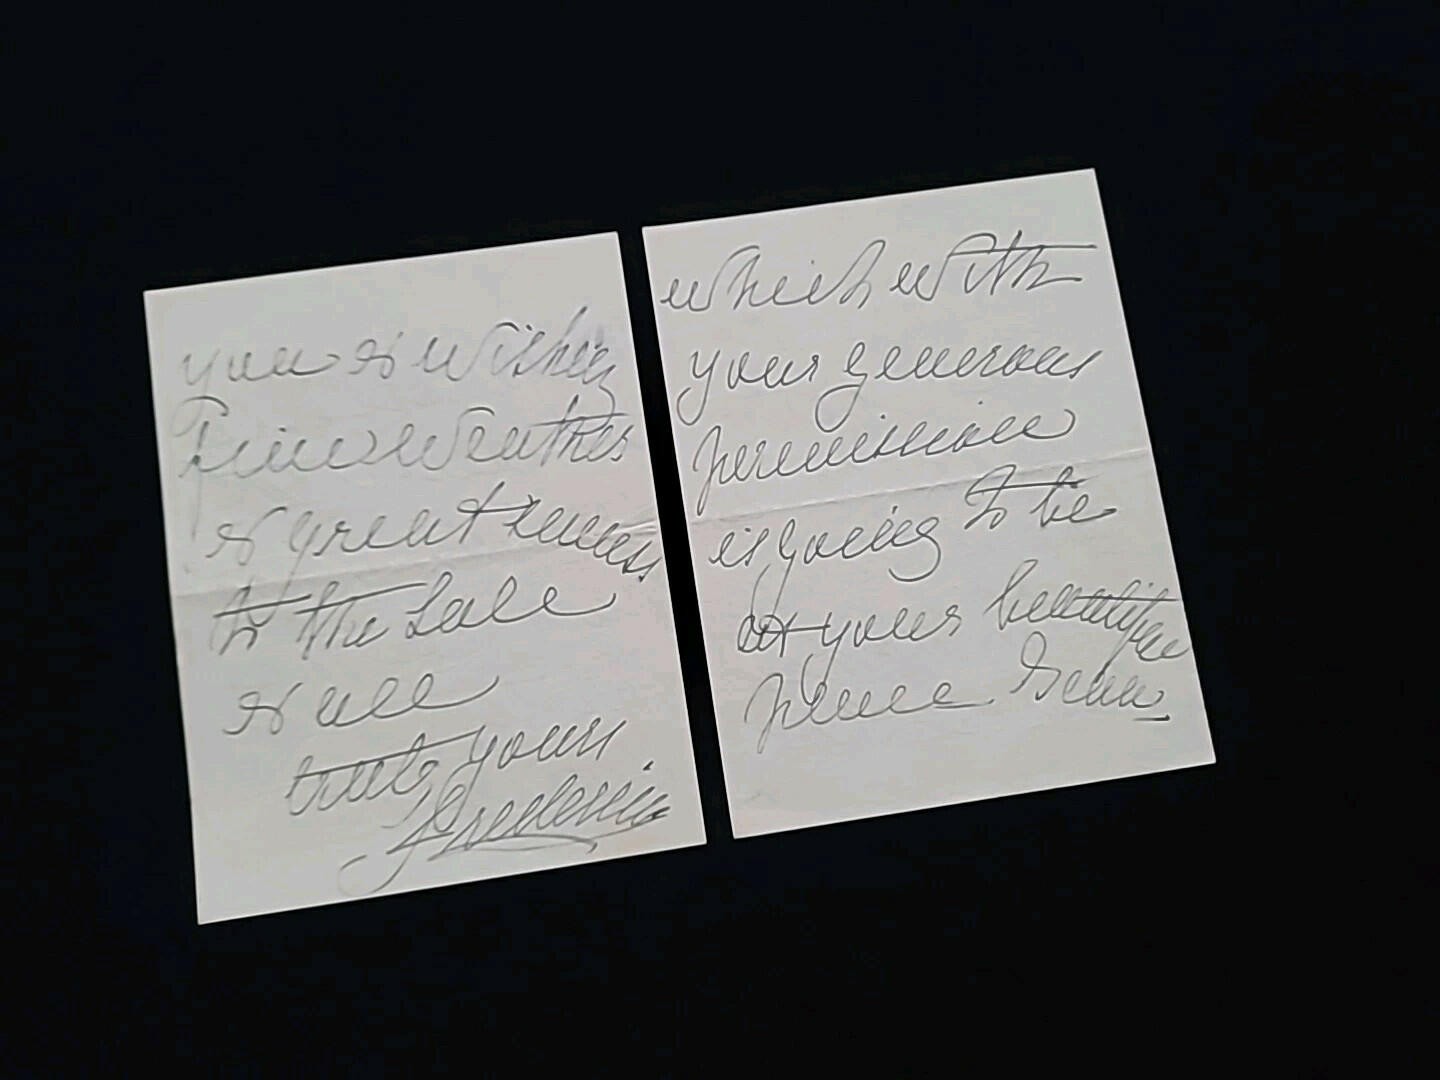 you & wishing
Fine Weather
& great success
to the Sale
& all
truly yours
Frederica
which with
your generous
permission
is going to be
at your beautiful
place